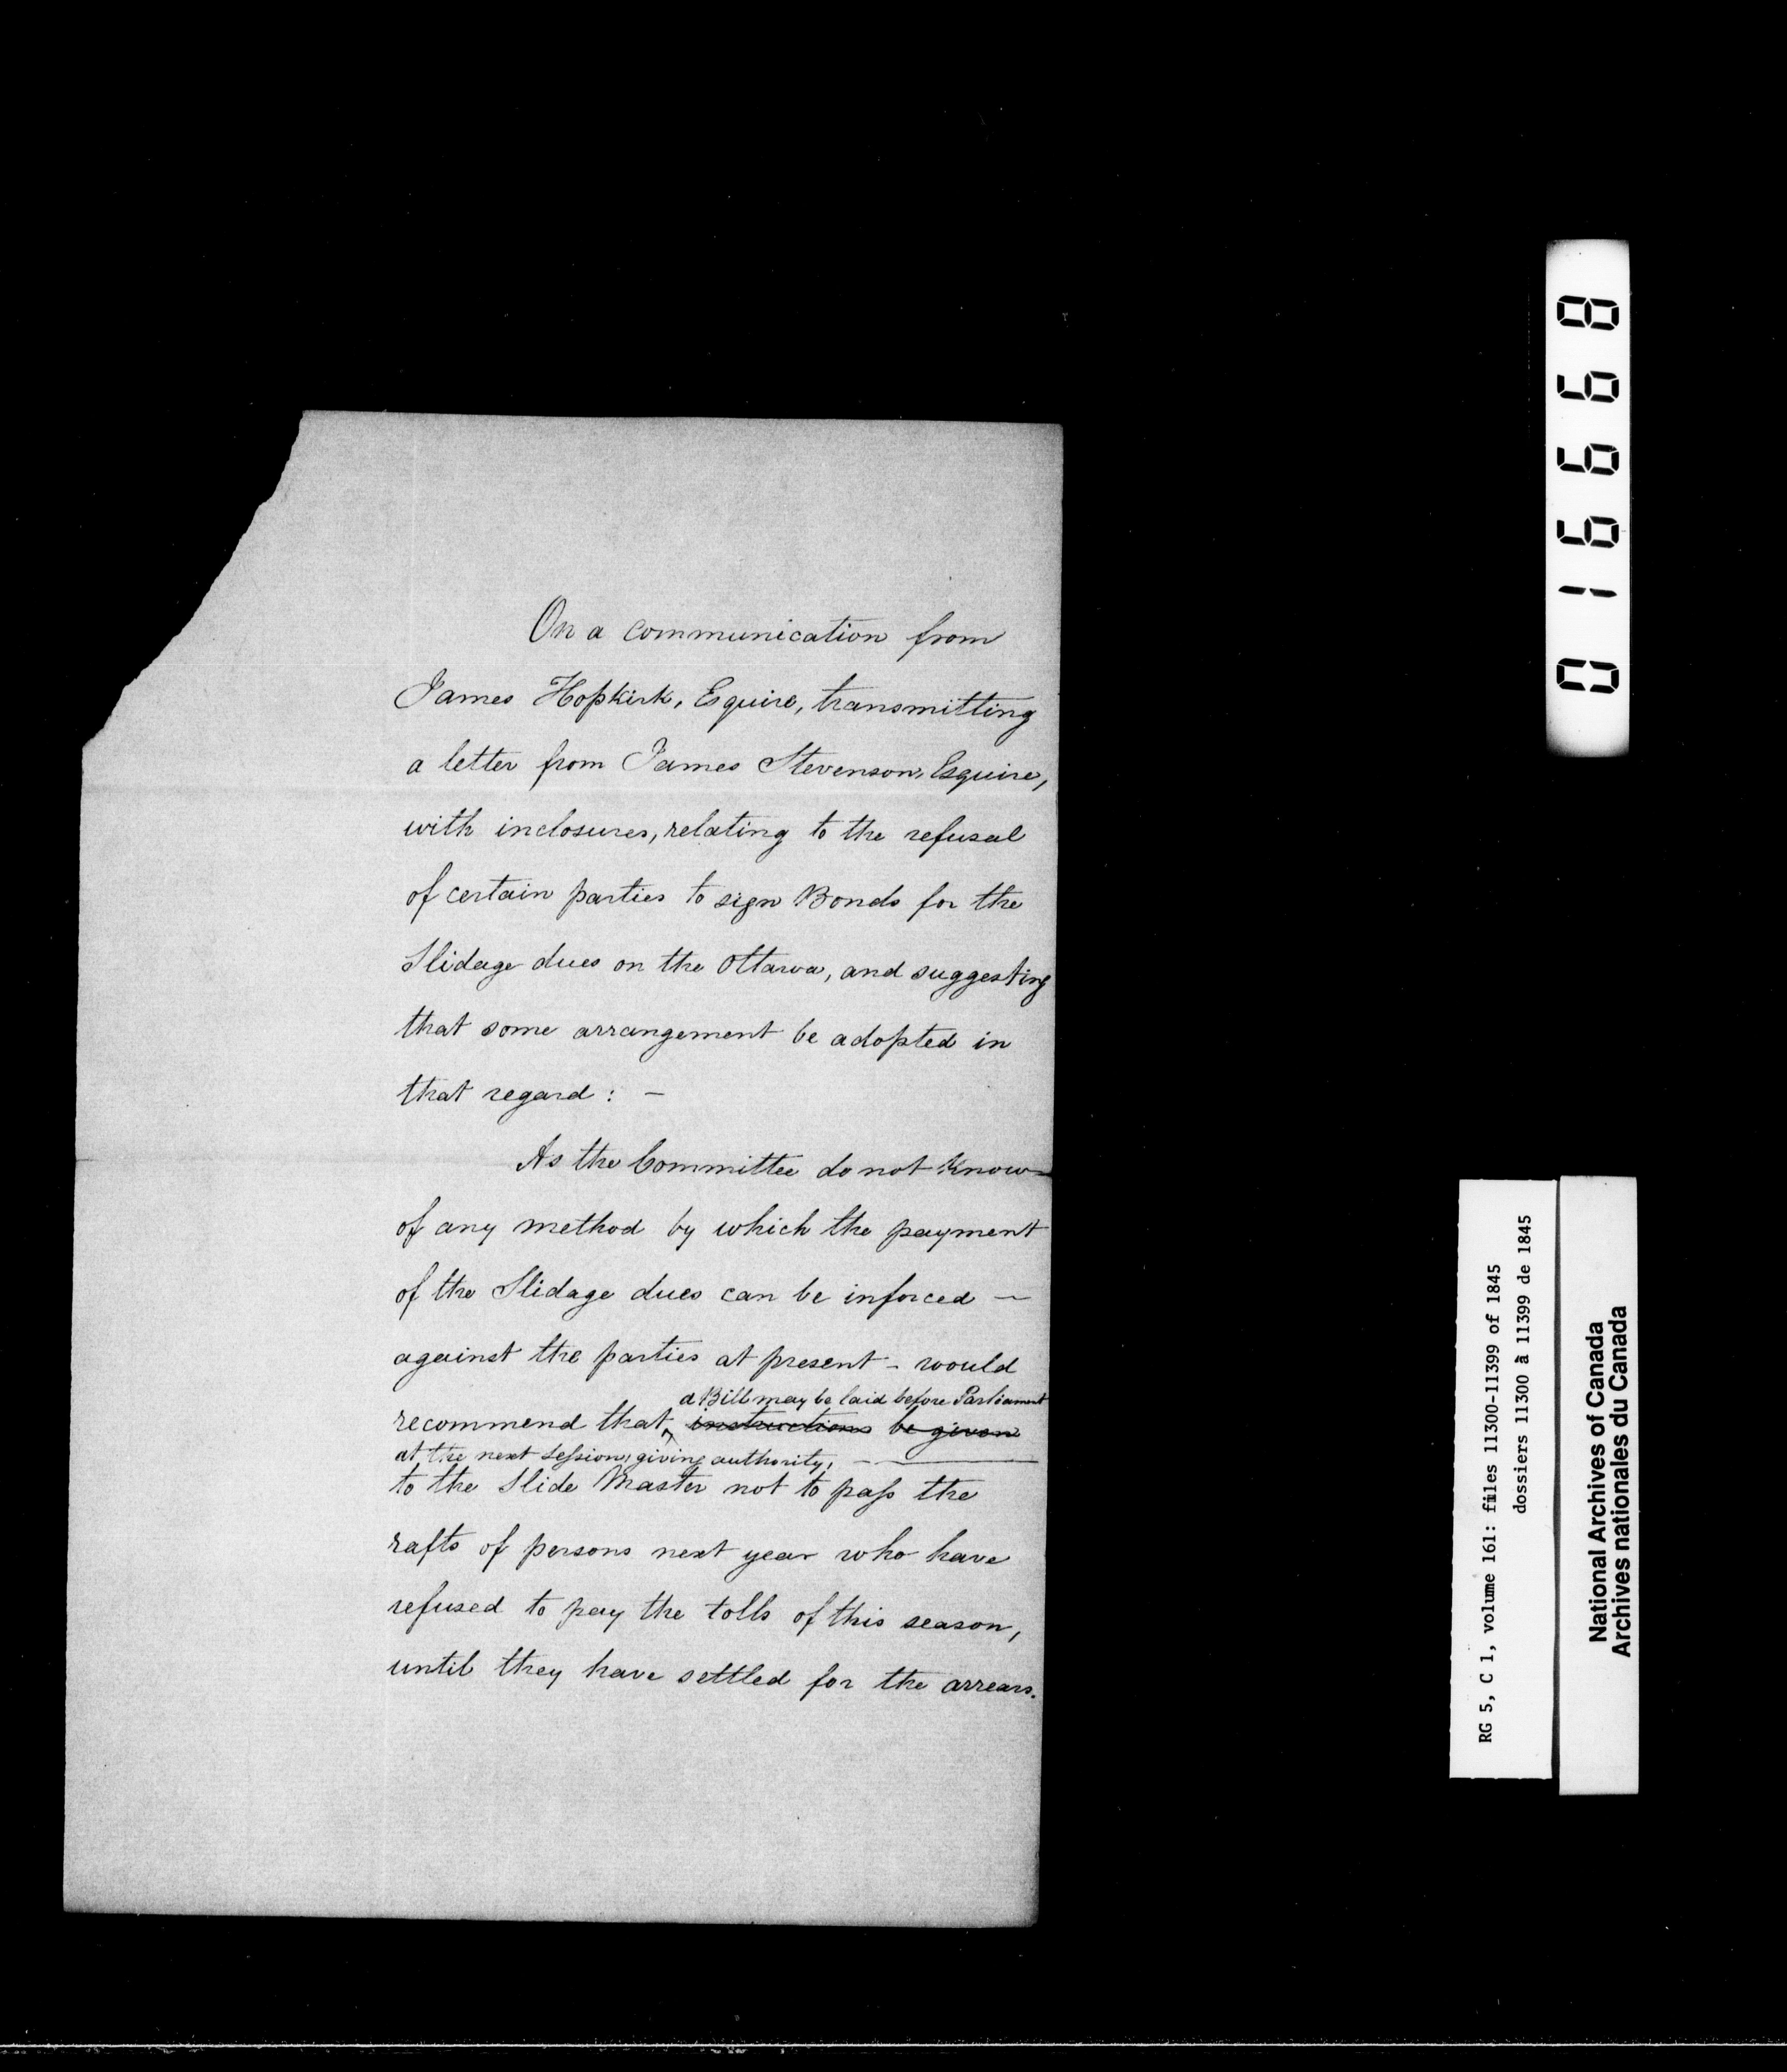 On a communication from
James Hopkirk, Esquire, transmitting
a letter from James Stevenson, Esquire,
with inclosures, relating to the refusal
of certain parties to sign Bonds for the
Slidage dues on the Ottawa, and suggesting
that some arrangement be adopted in
that regard : —
As the Committee do not know
of any method by which the payment
of the Slidage dues can be inforced —
against the parties at present - would
a Bill may be laid before Parliament
recommend that ^ instructions be given
at the next Session, giving authority, —
to the Slide Master not to pass the
rafts of persons next year who have
refused to pay the tolls of this season,
until they have settled for the arrears.
016668
RG 5, C 1, volume 161: files 11300-11399 of 1845
dossiers 11300 à 11399 de 1845
National Archives of Canada
Archives nationales du Canada